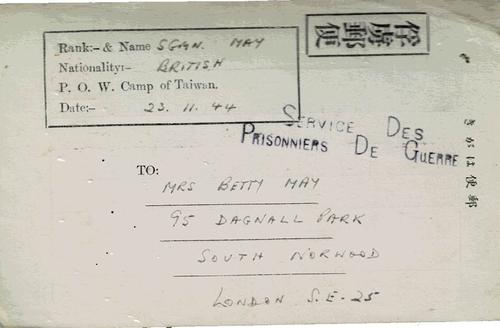 Rank:- & Name SGMN. MAY
Nationality:- BRITISH
P. O. W. Camp of Taiwan.
Date:- 23. 11. 44
俘虜郵便
SERVICE DES
PRISONNIERS DE GUERRE
郵便はがき
TO:
MRS BETTY MAY
95 DAGNALL PARK
SOUTH NORWOOD
LONDON S.E-25